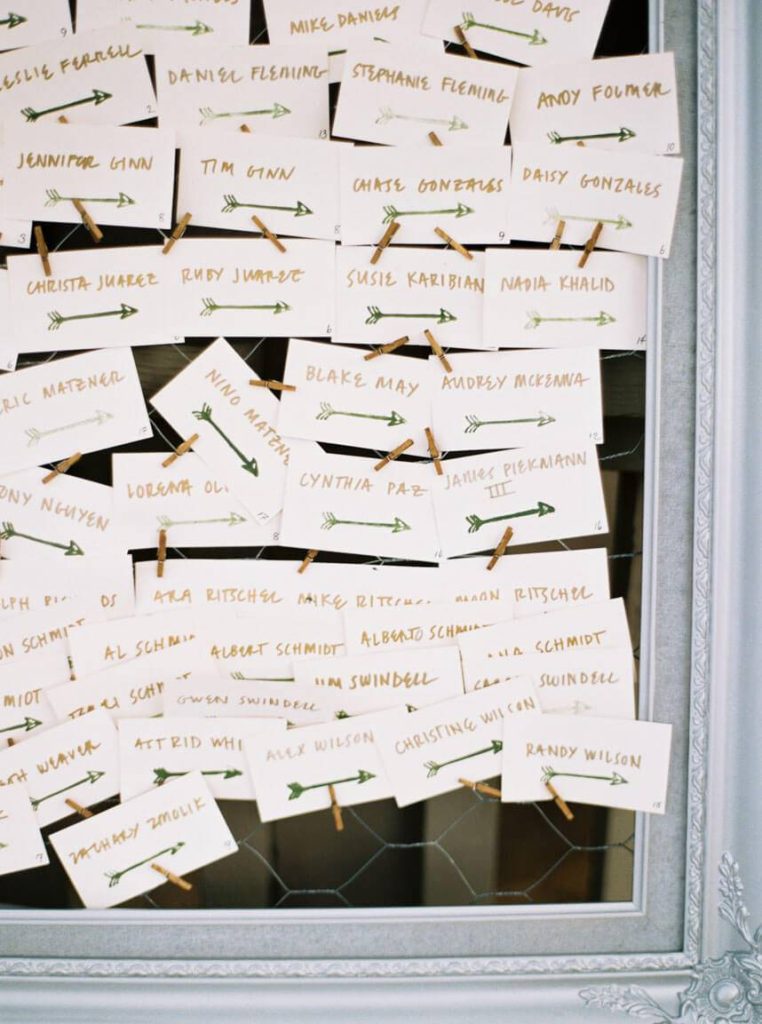 9
MIKE DANIELS
DAVIS
LESLIE FERRELL
2
DANIEL FLEMING
13
STEPHANIE FLEMING
ANDY FOLMER
10
JENNIFER GINN
8
TIM GINN
CHASE GONZALES
9
DAISY GONZALES
6
3
CHRISTA JUAREZ
RUBY JUAREZ
6
SUSIE KARIBIAN
NADIA KHALID
14
ERIC MATZNER
NINO MATZNE
17
BLAKE MAY
AUDREY MCKENNA
12
ONY NGUYEN
LORENA OL
8
CYNTHIA PAZ
JAMES PIEKMANN
III
16
ARA RITSCHEL
MIKE RITSCHEL
RITSCHEL
ON SCHMIDT
AL SCHMI
ALBERT SCHMIDT
ALBERTO SCHM
SCHMIDT
MIDT
SCHM
GWEN SWINDELL
IM SWINDELL
SWINDELL
WEAVER
ASTRID WHI
ALEX WILSON
CHRISTINE WILSON
RANDY WILSON
15
ZACHARY ZMOLIK